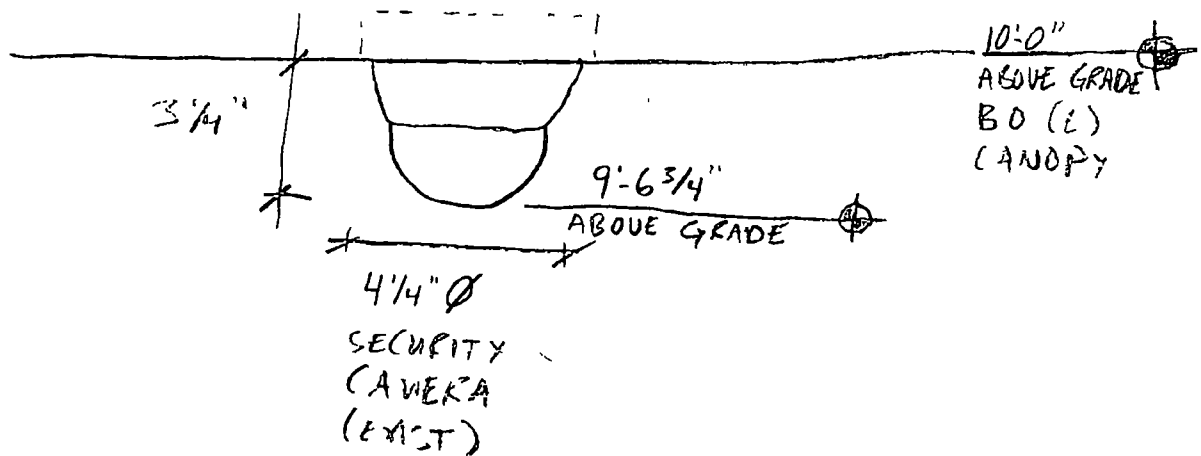 10'-0"
ABOVE GRADE
BO (E)
CANOPY
3 1/4"
9'-6 3/4"
ABOVE GRADE
4 1/4" Ø
SECURITY
CAMERA
(EXIST)